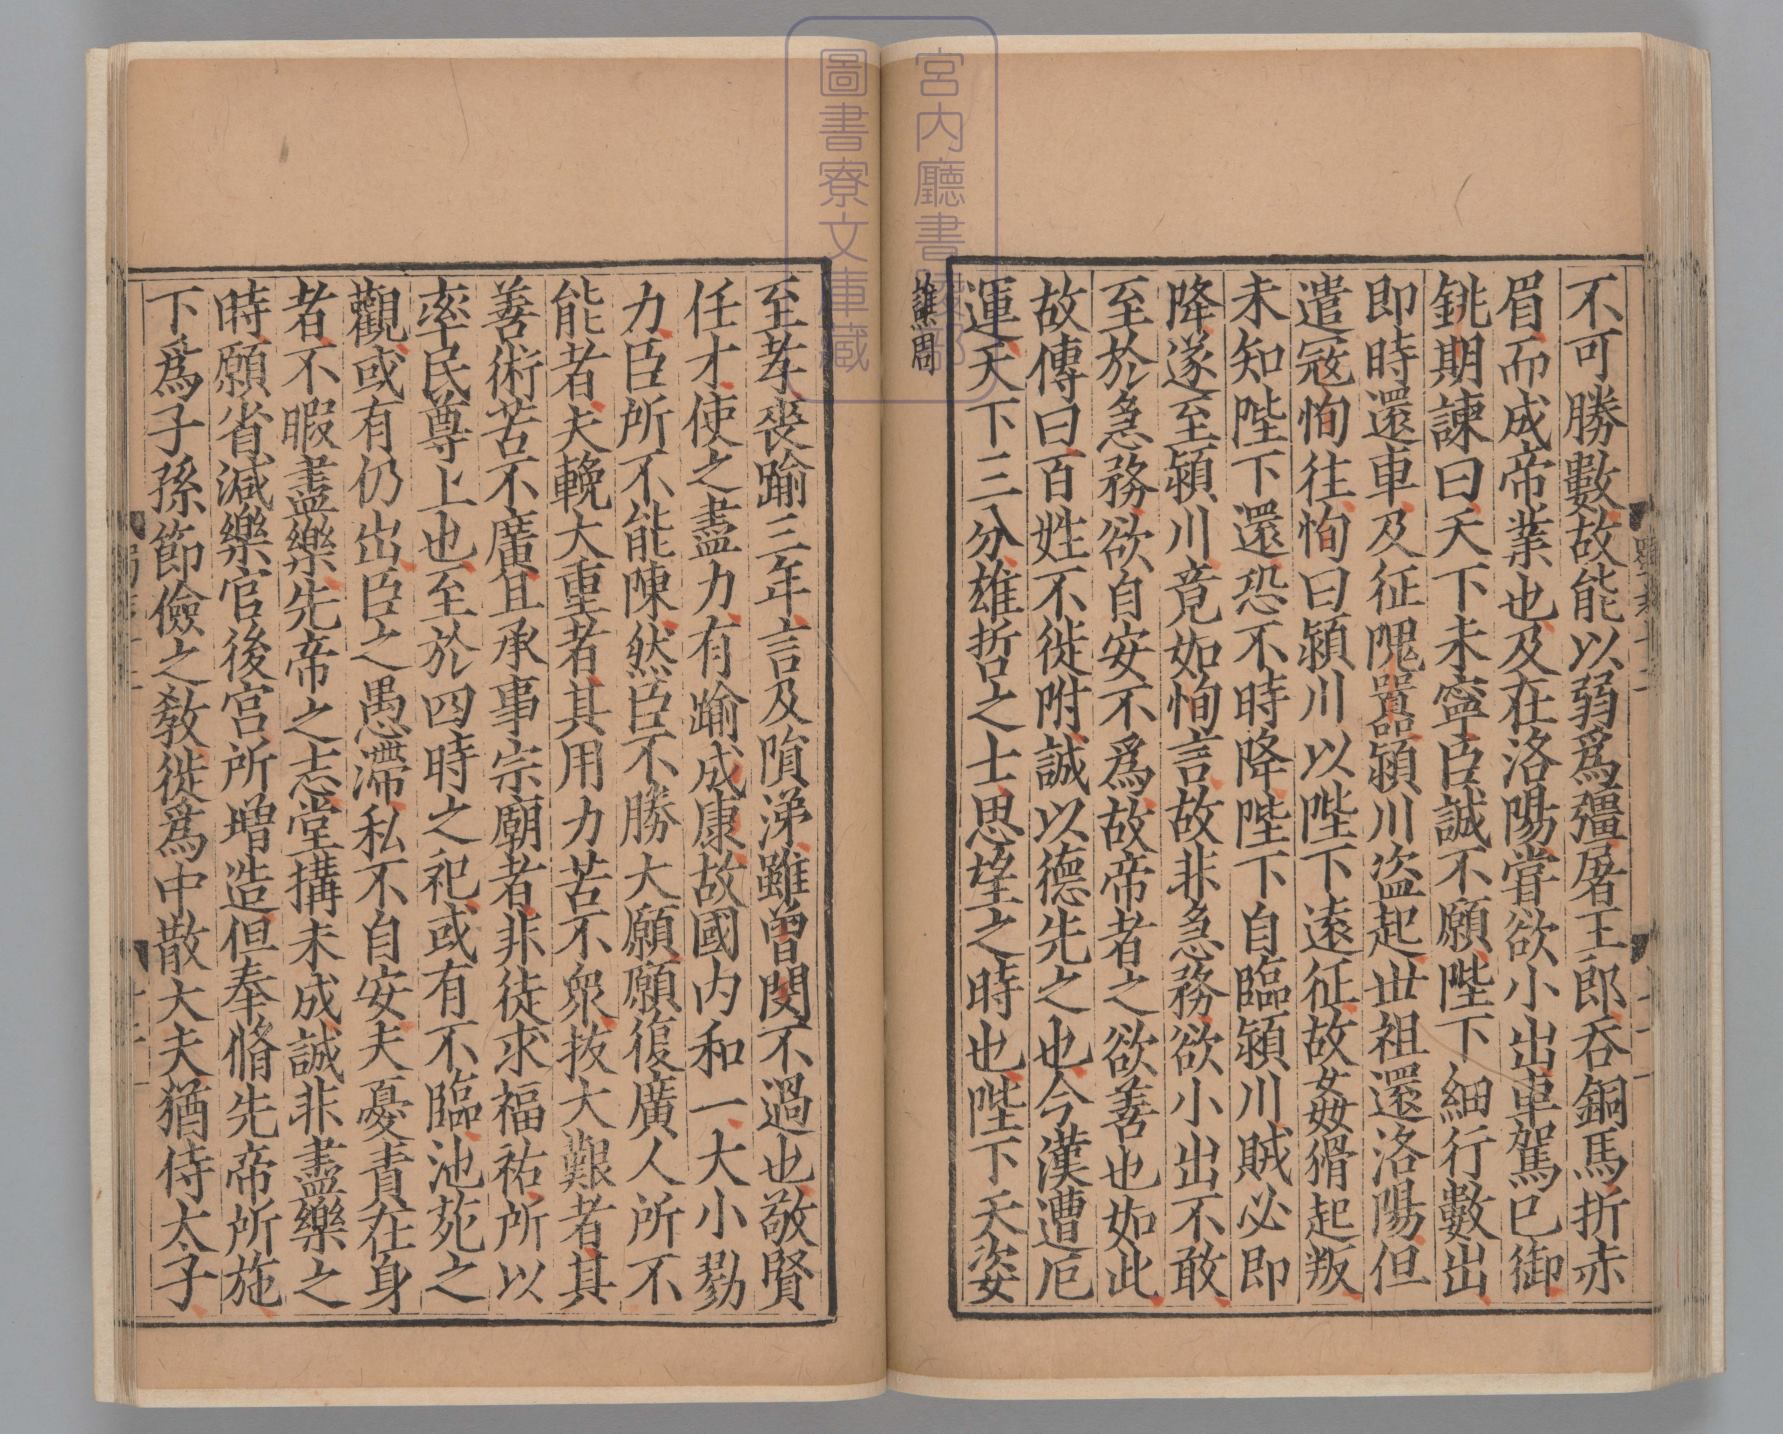 不可勝數故能以弱爲彊屠王郎呑銅馬折赤
眉而成帝業也及在洛陽嘗欲小出車駕已御
銚期諫曰天下未寧臣誠不願陛下細行數出
即時還車及征隗囂潁川盜起世祖還洛陽但
遣寇恂往恂曰潁川以陛下遠征故姦猾起叛
未知陛下還恐不時降陛下自臨潁川賊必即
降遂至潁川竟如恂言故非急務欲小出不敢
至於急務欲自安不爲故帝者之欲善也如此
故傳曰百姓不徙附誠以德先之也今漢遭厄
運天下三分雄哲之士思望之時也陛下天姿
譙周
至孝喪踰三年言及隕涕雖曾閔不過也敬賢
任才使之盡力有踰成康故國內和一大小勠
力臣所不能陳然臣不勝大願願復廣人所不
能者夫輓大重者其用力苦不衆拔大艱者其
善術苦不廣且承事宗廟者非徒求福祐所以
率民尊上也至於四時之祀或有不臨池苑之
觀或有仍出臣之愚滯私不自安夫憂責在身
者不暇盡樂先帝之志堂搆未成誠非盡樂之
時願省減樂官後宮所增造但奉脩先帝所施
下爲子孫節儉之敎徙爲中散大夫猶侍太子
宮內廳書陵部
圖書寮文庫藏